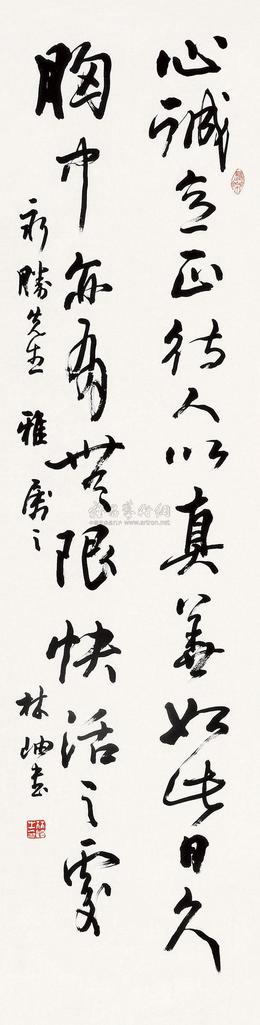 心诚意正待人以真善如此日久
胸中亦有无限快活之处
永勝先生雅属之
林岫書
www.artron.net